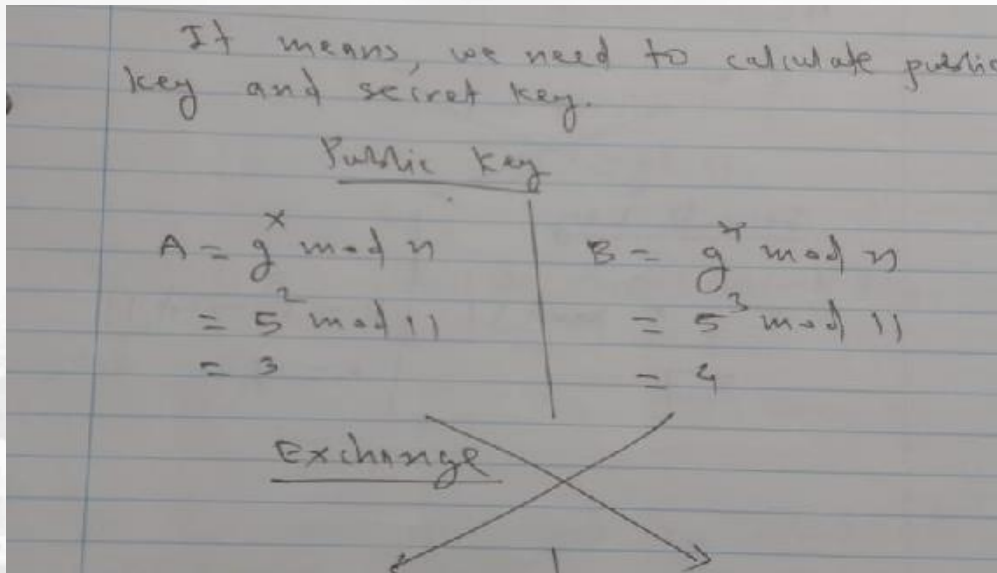 It means, we need to calculate public
key and secret key.
Public Key
A = g^x mod n
= 5^2 mod 11
= 3
B = g^y mod n
= 5^3 mod 11
= 4
Exchange